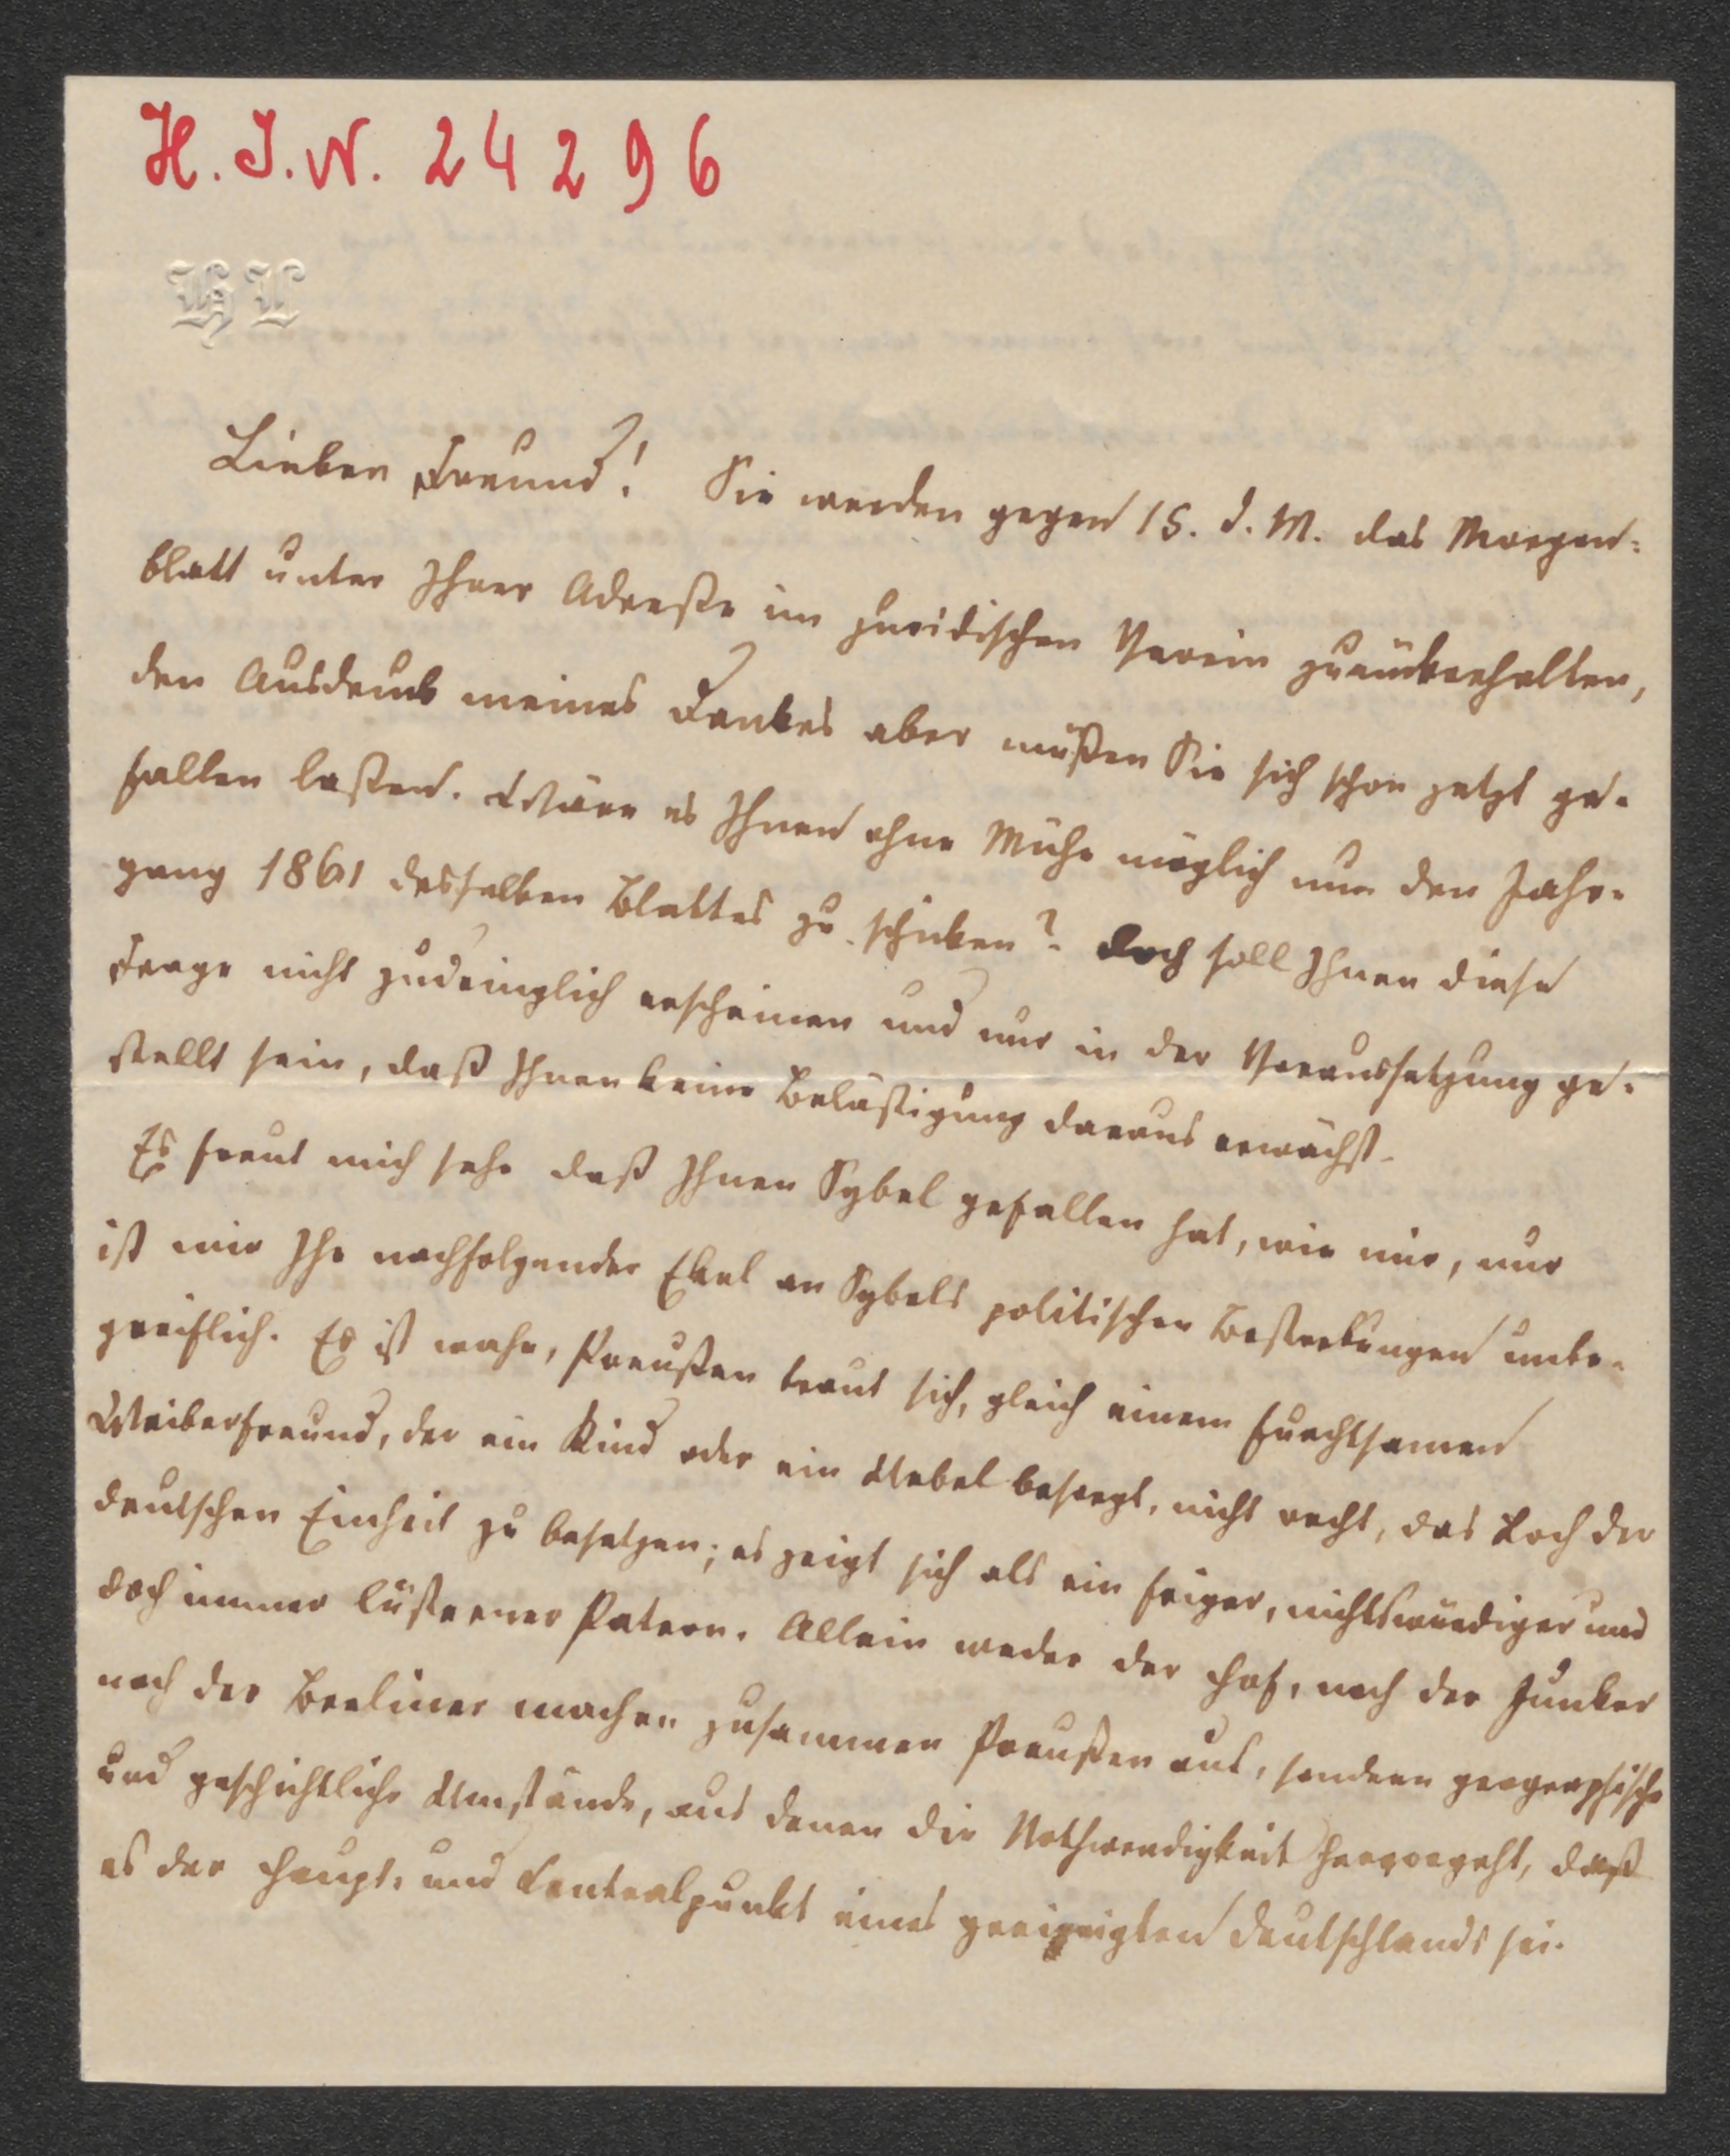 H. I. N. 24296
HL
Lieber Freund! Sie werden gegen 15. d. M. das Morgen-
blatt unter Ihrer Adreße im juridischen Verein zurückerhalten,
den Ausdruck meines Dankes aber müßen Sie sich schon jetzt ge-
fallen laßen. Wäre es Ihnen ohne Mühe möglich nun den Jahr-
gang 1861 desselben Blattes zu schicken? Doch soll Ihnen diese
Frage nicht zudringlich erscheinen und nur in der Voraussetzung ge-
stellt sein, daß Ihnen keine Beläßtigung daraus erwächst.
Es freut mich sehr daß Ihnen Sybel gefallen hat, wie mir, nur
ist mir Ihr nachfolgender Ekel an Sybels politischen Bestrebungen unbe-
greiflich. Es ist wahr, Preußen traut sich, gleich einem furchtsamen
Weiberfreund, der ein Kind oder ein Uebel besorgt, nicht recht, das Loch der
deutschen Einheit zu besetzen; es zeigt sich als ein feiger, nichtswürdiger und
doch immer lüsterner Patron. Allein weder der Hof, noch der Junker
noch der Berliner machen zusammen Preußen aus, sondern geographische
und geschichtliche Umstände, aus denen die Nothwendigkeit hervorgeht, daß
es der Haupt- und Centralpunkt eines geeinigten Deutschlands sei.